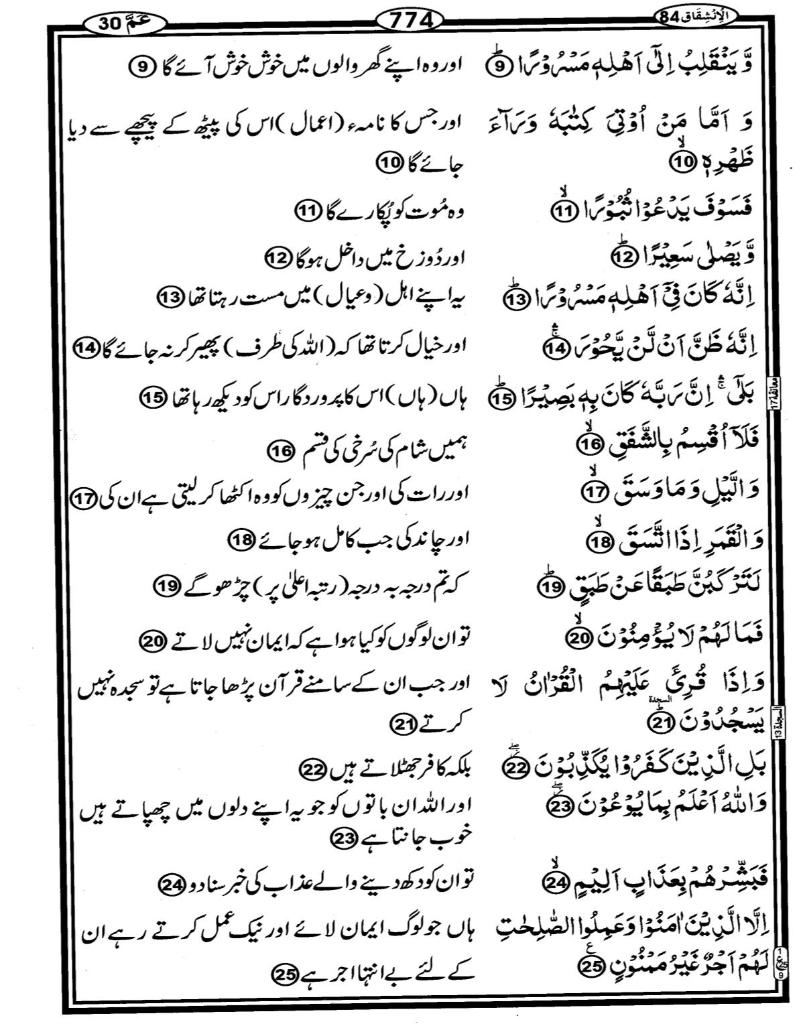 الْاِنْشِقَاق 84
774
عَمَّ 30
وَّ يَنْقَلِبُ اِلٰٓى اَهْلِهٖ مَسْرُوْرًا ؕ 9 اور وہ اپنے گھر والوں میں خوش خوش آئے گا 9
وَ اَمَّا مَنْ اُوْتِىَ كِتٰبَهٗ وَرَآءَ اور جس کا نامہء (اعمال) اس کی پیٹھ کے پیچھے سے دیا
ظَهْرِهٖ ۙ 10 جائے گا 10
فَسَوْفَ يَدْعُوْا ثُبُوْرًا ۙ 11 وہ مُوت کو پُکارے گا 11
وَّ يَصْلٰى سَعِيْرًا ؕ 12 اور دُوزخ میں داخل ہوگا 12
اِنَّهٗ كَانَ فِىْٓ اَهْلِهٖ مَسْرُوْرًا ؕ 13 یہ اپنے اہل (و عیال) میں مست رہتا تھا 13
اِنَّهٗ ظَنَّ اَنْ لَّنْ يَّحُوْرَ ۛۚ 14 اور خیال کرتا تھا کہ (اللہ کی طرف) پھیر کر نہ جائے گا 14
بَلٰٓى ۛۚ اِنَّ رَبَّهٗ كَانَ بِهٖ بَصِيْرًا ؕ 15 ہاں (ہاں) اس کا پروردگار اس کو دیکھ رہا تھا 15
معانقة 17
فَلَاۤ اُقْسِمُ بِالشَّفَقِ ۙ 16 ہمیں شام کی سُرخی کی قسم 16
وَالَّيْلِ وَمَا وَسَقَ ۙ 17 اور رات کی اور جن چیزوں کو وہ اکٹھا کر لیتی ہے ان کی 17
وَالْقَمَرِ اِذَا اتَّسَقَ ۙ 18 اور چاند کی جب کامل ہو جائے 18
لَتَرْكَبُنَّ طَبَقًا عَنْ طَبَقٍ ؕ 19 کہ تم درجہ بہ درجہ (رتبہ اعلیٰ پر) چڑھو گے 19
فَمَا لَهُمْ لَا يُؤْمِنُوْنَ ۙ 20 تو ان لوگوں کو کیا ہوا ہے کہ ایمان نہیں لاتے 20
وَاِذَا قُرِئَ عَلَيْهِمُ الْقُرْاٰنُ لَا اور جب ان کے سامنے قرآن پڑھا جاتا ہے تو سجدہ نہیں
يَسْجُدُوْنَ ؕ السجدة 21 کرتے 21
السجدة 13
بَلِ الَّذِيْنَ كَفَرُوْا يُكَذِّبُوْنَ ۖ 22 بلکہ کافر جھٹلاتے ہیں 22
وَاللّٰهُ اَعْلَمُ بِمَا يُوْعُوْنَ ۖ 23 اور اللہ ان باتوں کو جو یہ اپنے دلوں میں چھپاتے ہیں
خوب جانتا ہے 23
فَبَشِّرْهُمْ بِعَذَابٍ اَلِيْمٍ ۙ 24 تو ان کو دکھ دینے والے عذاب کی خبر سنا دو 24
اِلَّا الَّذِيْنَ اٰمَنُوْا وَعَمِلُوا الصّٰلِحٰتِ ہاں جو لوگ ایمان لائے اور نیک عمل کرتے رہے ان
لَهُمْ اَجْرٌ غَيْرُ مَمْنُوْنٍ ع 25 کے لئے بے انتہا اجر ہے 25